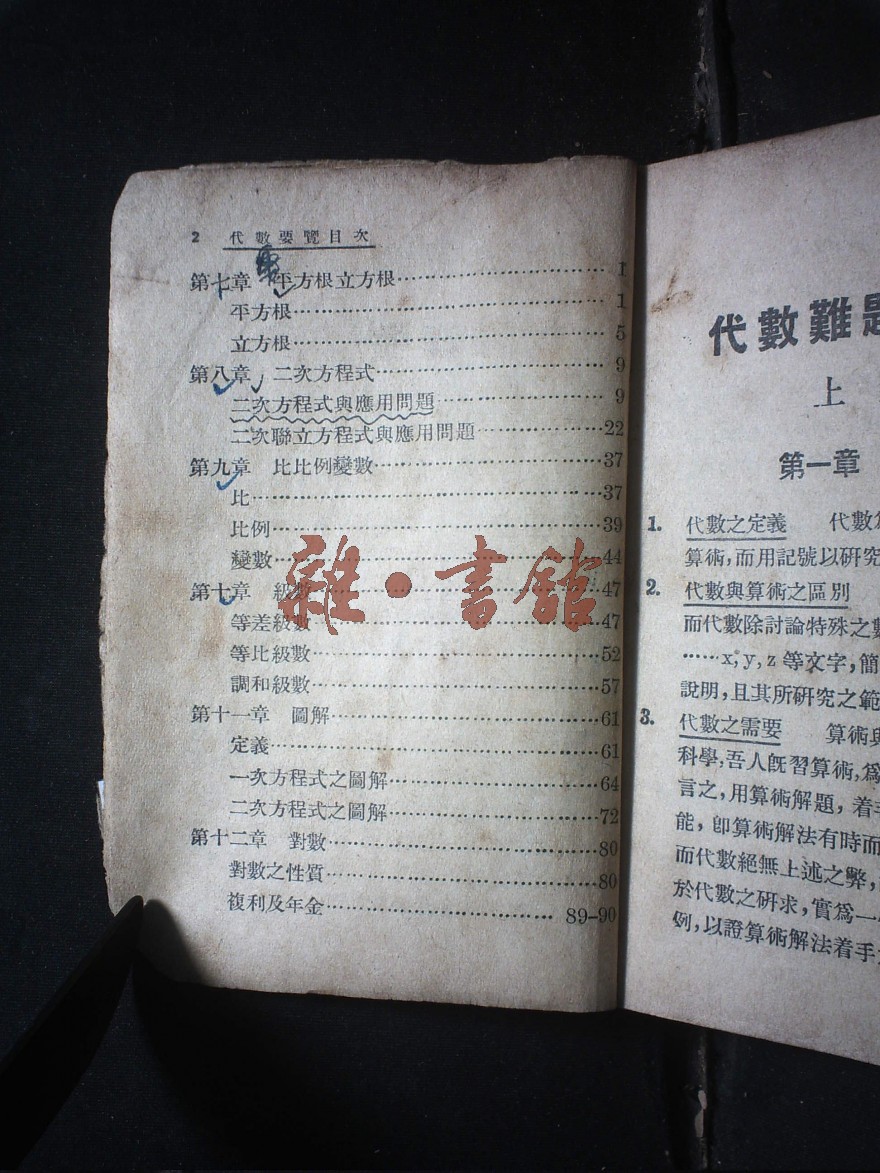 2 代數要覽目次
第七章 平方根立方根 1
平方根 1
立方根 5
第八章 二次方程式 9
二次方程式與應用問題 9
二次聯立方程式與應用問題 22
第九章 比比例變數 37
比 37
比例 39
變數 44
第十章 級數 47
等差級數 47
等比級數 52
調和級數 57
第十一章 圖解 61
定義 61
一次方程式之圖解 64
二次方程式之圖解 72
第十二章 對數 80
對數之性質 80
複利及年金 89-90
雜·書館
代數難題
上
第一章
1. 代數之定義 代數爲
算術,而用記號以研究
2. 代數與算術之區別
而代數除討論特殊之數
……x, y, z 等文字,簡
說明,且其所研究之範
3. 代數之需要 算術與
科學,吾人旣習算術,爲
言之,用算術解題,着手
能,卽算術解法有時而
而代數絕無上述之弊,
於代數之研求,實爲一
例,以證算術解法着手